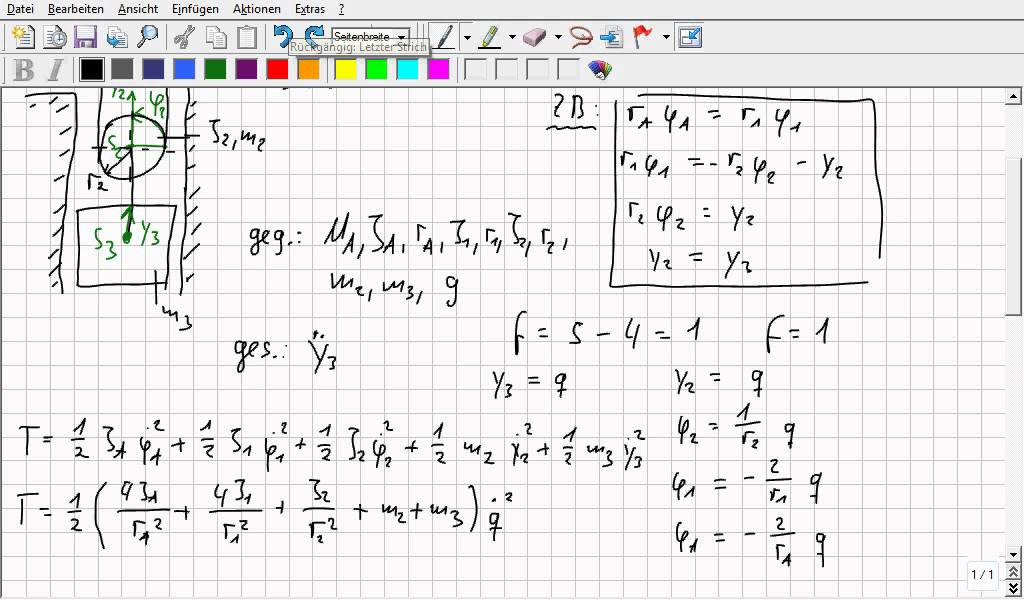 Datei Bearbeiten Ansicht Einfügen Aktionen Extras ?
Seitenbreite
Rückgängig: Letzter Strich
B I
φ₂
J₂, m₂
S₂
r₂
S₃ y₃
m₃
ZB:
r_A φ_A = r₁ φ₁
r₁ φ₁ = - r₂ φ₂ - y₂
r₂ φ₂ = y₂
y₂ = y₃
geg.: M_A, J_A, r_A, J₁, r₁, J₂, r₂,
m₂, m₃, g
ges.: ÿ₃
f = 5 - 4 = 1 f = 1
y₃ = q y₂ = q
φ₂ = 1/r₂ q
φ₁ = - 2/r₁ q
φ_A = - 2/r_A q
T = 1/2 J_A φ̇_A² + 1/2 J₁ φ̇₁² + 1/2 J₂ φ̇₂² + 1/2 m₂ ẏ₂² + 1/2 m₃ ẏ₃²
T = 1/2 ( 4J_A/r_A² + 4J₁/r₁² + J₂/r₂² + m₂ + m₃ ) q̇²
1 / 1